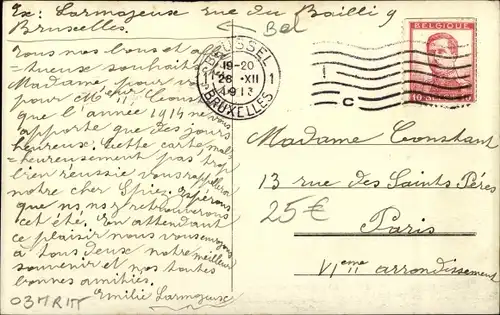 Ex: Larmoyeux rue du Bailli 9
Bruxelles.
Bel
Tous nos bons et affec
tueux souhaits
Madame pour vous
pour Mr Constant
que l'année 1914 ne vous
apporte que des jours
heureux. Cette carte mal
heureusement pas trop
bien réussie vous rappellera
notre cher Spiez. Espérons
que ns ns y retrouverons
cet été. En attendant
ce plaisir nous vous envoyons
à tous deux notre meilleur
souvenir et nos toutes
bonnes amitiés.
Emilie Larmoyeux
03MRIT
BRUSSEL
19-20
26 XII
1913
1 1
BRUXELLES
C
BELGIQUE
10
Madame Constant
13 rue des Saints Pères
25€
Paris
VIeme arrondissement